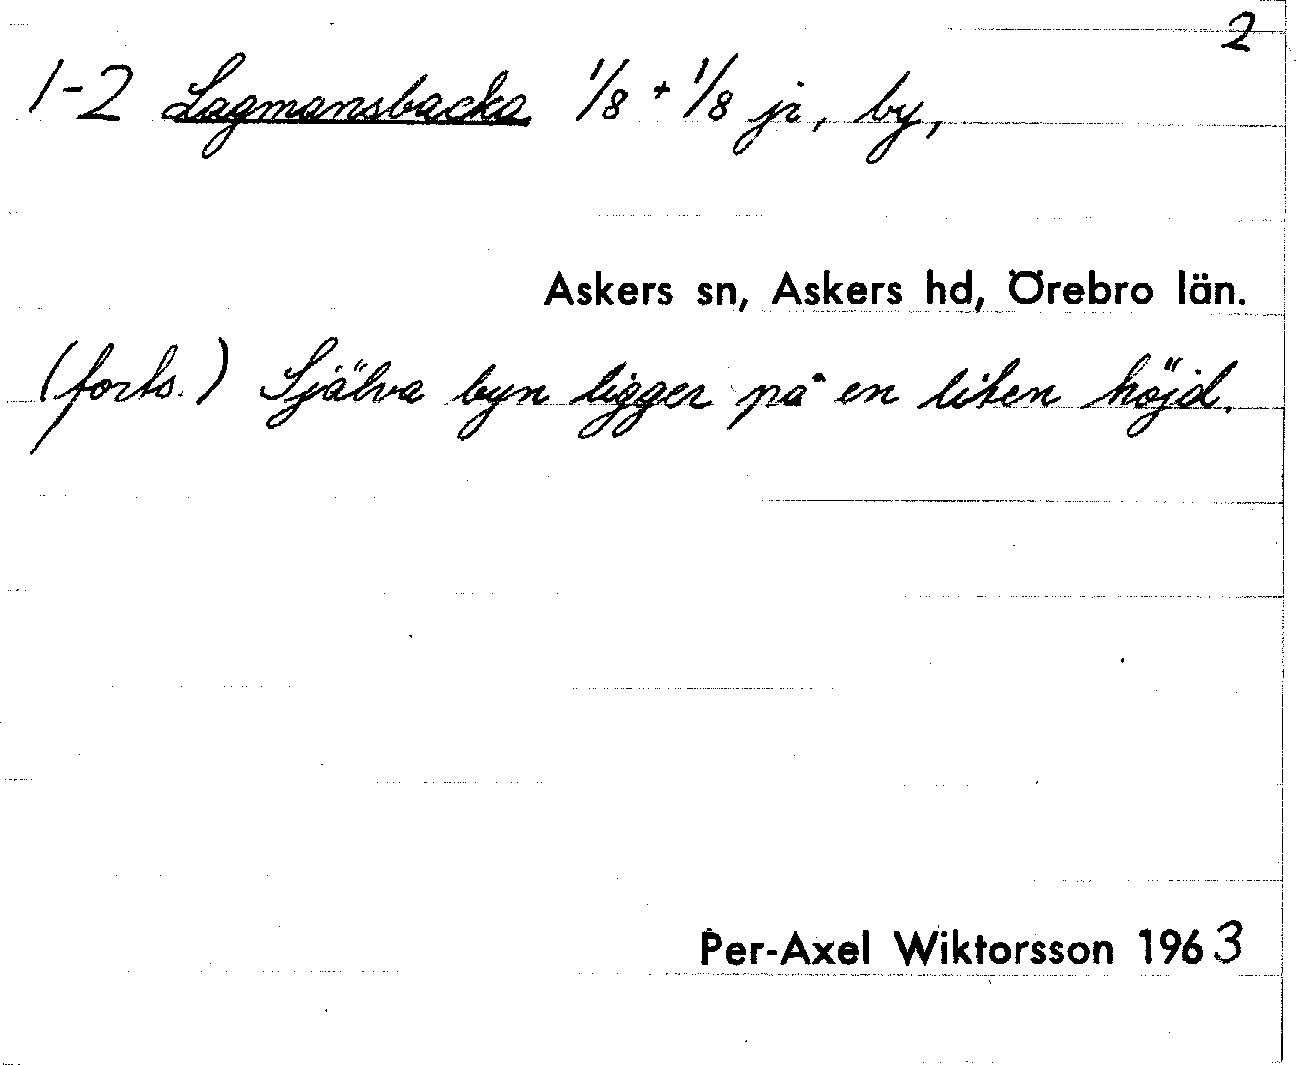 2
1-2 Lagmansbacka 1/8 + 1/8 ji, by,
Askers sn, Askers hd, Örebro län.
(forts.) Själva byn ligger på en liten höjd.
Per-Axel Wiktorsson 1963